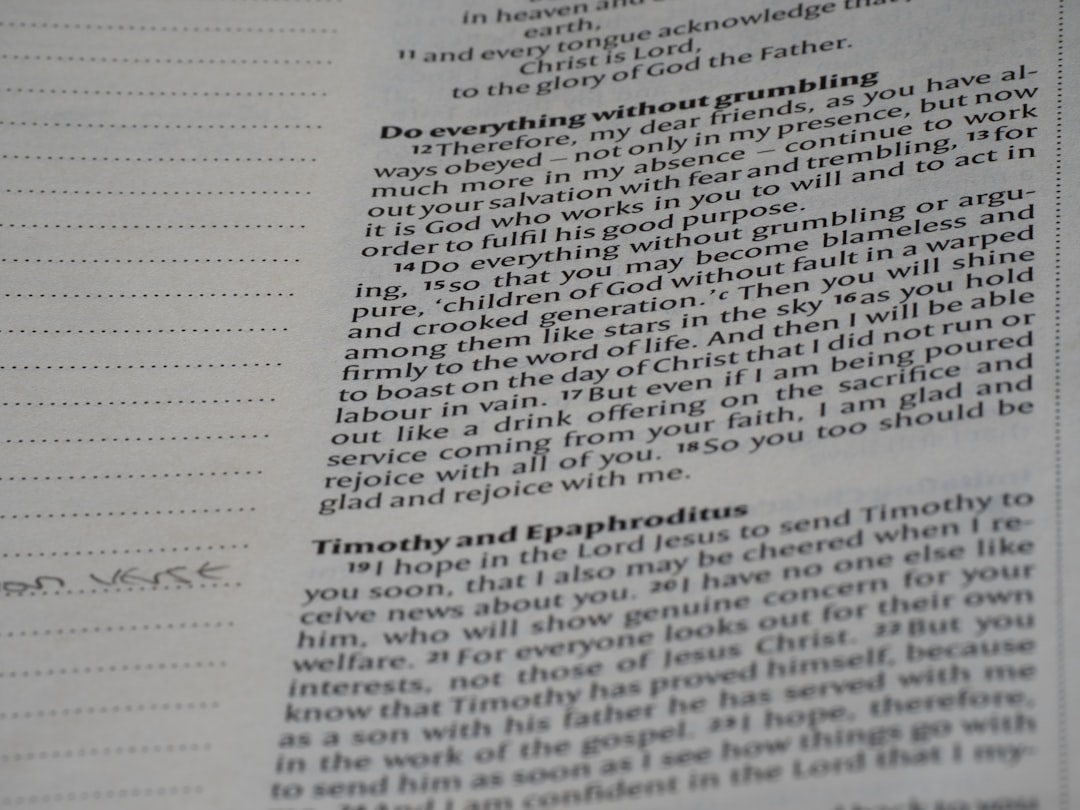 in heaven and
earth,
11 and every tongue acknowledge that
Christ is Lord,
to the glory of God the Father.
Do everything without grumbling
12 Therefore, my dear friends, as you have al-
ways obeyed – not only in my presence, but now
much more in my absence – continue to work
out your salvation with fear and trembling, 13 for
it is God who works in you to will and to act in
order to fulfil his good purpose.
14 Do everything without grumbling or argu-
ing, 15 so that you may become blameless and
pure, ‘children of God without fault in a warped
and crooked generation.’ c Then you will shine
among them like stars in the sky 16 as you hold
firmly to the word of life. And then I will be able
to boast on the day of Christ that I did not run or
labour in vain. 17 But even if I am being poured
out like a drink offering on the sacrifice and
service coming from your faith, I am glad and
rejoice with all of you. 18 So you too should be
glad and rejoice with me.
Timothy and Epaphroditus
19 I hope in the Lord Jesus to send Timothy to
you soon, that I also may be cheered when I re-
ceive news about you. 20 I have no one else like
him, who will show genuine concern for your
welfare. 21 For everyone looks out for their own
interests, not those of Jesus Christ. 22 But you
know that Timothy has proved himself, because
as a son with his father he has served with me
in the work of the gospel. 23 I hope, therefore,
to send him as soon as I see how things go with
And I am confident in the Lord that I my-
back to you
verse